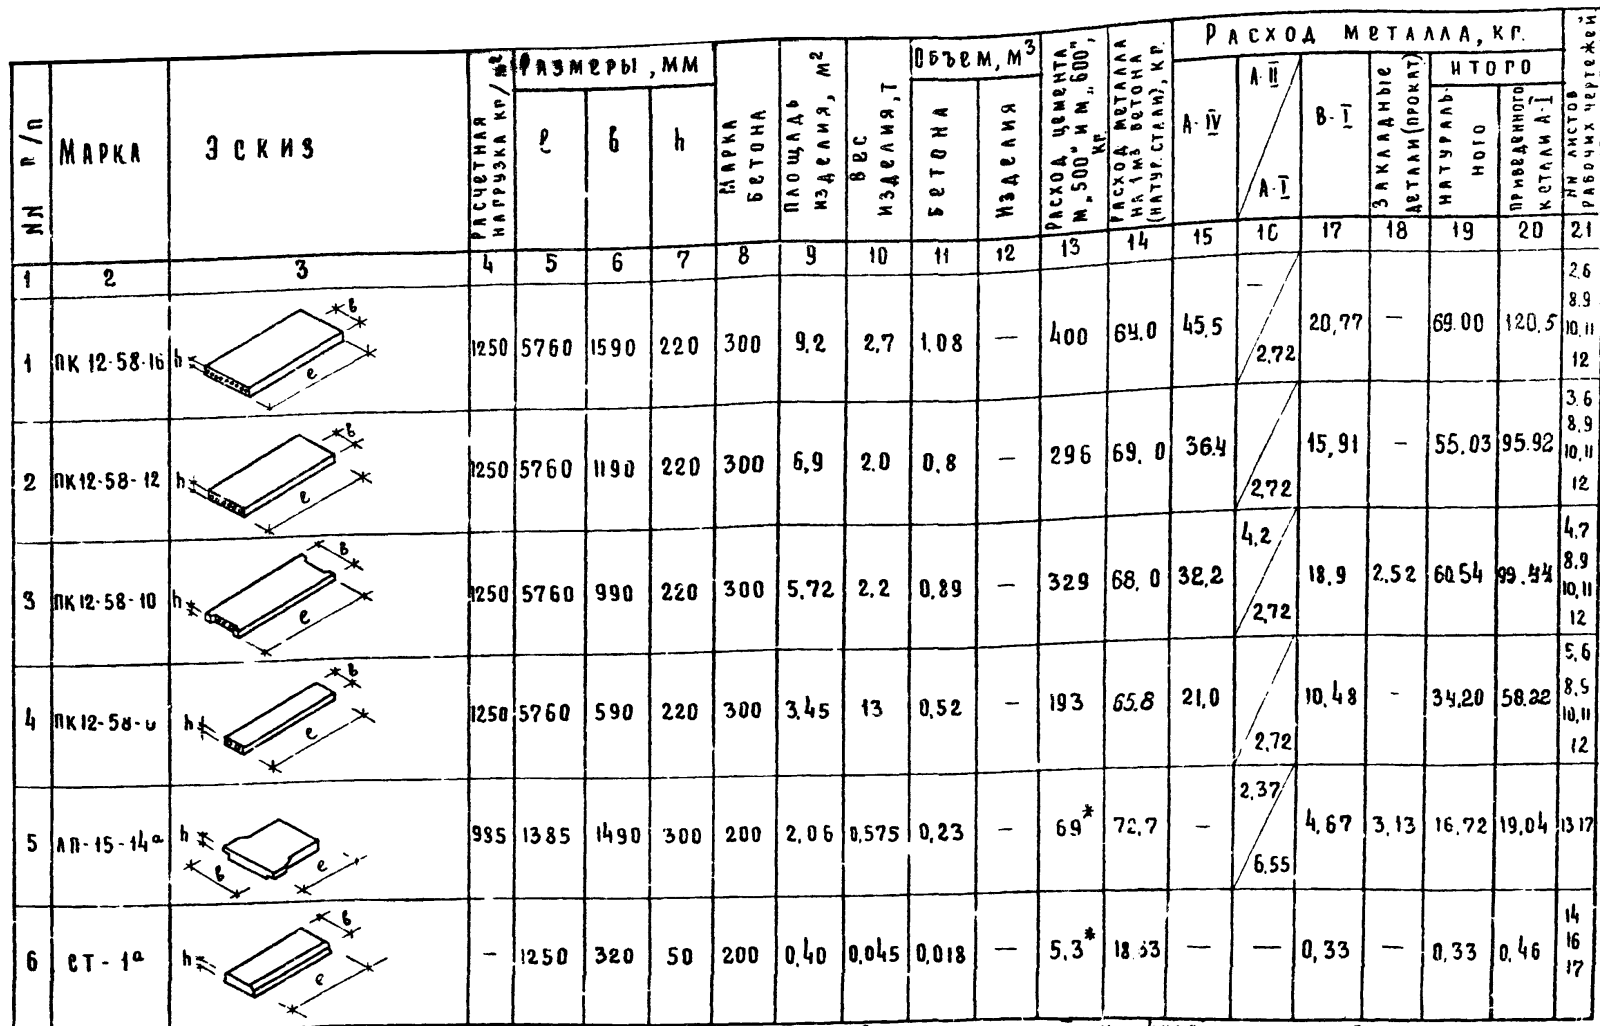 NN п/п | МАРКА | ЭСКИЗ | РАСЧЕТНАЯ НАГРУЗКА КГ/м² | РАЗМЕРЫ, ММ | МАРКА БЕТОНА | ПЛОЩАДЬ ИЗДЕЛИЯ, М² | ВЕС ИЗДЕЛИЯ, Т | ОБЪЕМ, М³ | РАСХОД ЦЕМЕНТА М„500" И М„600", КГ. | РАСХОД МЕТАЛЛА НА 1 М3 БЕТОНА (НАТУР. СТАЛИ), КГ. | РАСХОД МЕТАЛЛА, КГ. | NN ЛИСТОВ РАБОЧИХ ЧЕРТЕЖЕЙ
ℓ | в | h | БЕТОНА | ИЗДЕЛИЯ | А-IV | А-II / А-I | В-I | ЗАКЛАДНЫЕ ДЕТАЛИ (ПРОКАТ) | ИТОГО | НАТУРАЛЬНОГО | ПРИВЕДЕННОГО К СТАЛИ А-I
1 | 2 | 3 | 4 | 5 | 6 | 7 | 8 | 9 | 10 | 11 | 12 | 13 | 14 | 15 | 16 | 17 | 18 | 19 | 20 | 21
1 | ПК 12-58-16 | h в ℓ | 1250 | 5760 | 1590 | 220 | 300 | 9,2 | 2,7 | 1,08 | — | 400 | 64.0 | 45,5 | — / 2,72 | 20,77 | — | 69.00 | 120,5 | 2,6 8.9 10,11 12
2 | ПК12-58-12 | h в ℓ | 1250 | 5760 | 1190 | 220 | 300 | 6,9 | 2.0 | 0,8 | — | 296 | 69,0 | 36.4 | 2,72 | 15,91 | — | 55.03 | 95.92 | 3.6 8,9 10,11 12
3 | ПК12-58-10 | h в ℓ | 1250 | 5760 | 990 | 220 | 300 | 5,72 | 2,2 | 0,89 | — | 329 | 68,0 | 32,2 | 4,2 / 2,72 | 18,9 | 2,52 | 60.54 | 99.44 | 4,7 8.9 10,11 12
4 | ПК12-58- | h в ℓ | 1250 | 5760 | 590 | 220 | 300 | 3,45 | 13 | 0,52 | — | 193 | 65.8 | 21,0 | 2,72 | 10,48 | - | 34,20 | 58.22 | 5,6 10,11 12
5 | ЛП-15-14а | h в ℓ | 935 | 1385 | 1490 | 300 | 200 | 2,06 | 0,575 | 0,23 | — | 69* | 72,7 | — | 2,37 / 6,55 | 4,67 | 3,13 | 16,72 | 19,04 | 13 17
6 | СТ-1а | h в ℓ | — | 1250 | 320 | 50 | 200 | 0,40 | 0,045 | 0,018 | — | 5,3* | 18.33 | — | — | 0,33 | — | 0,33 | 0,46 | 14 16 17